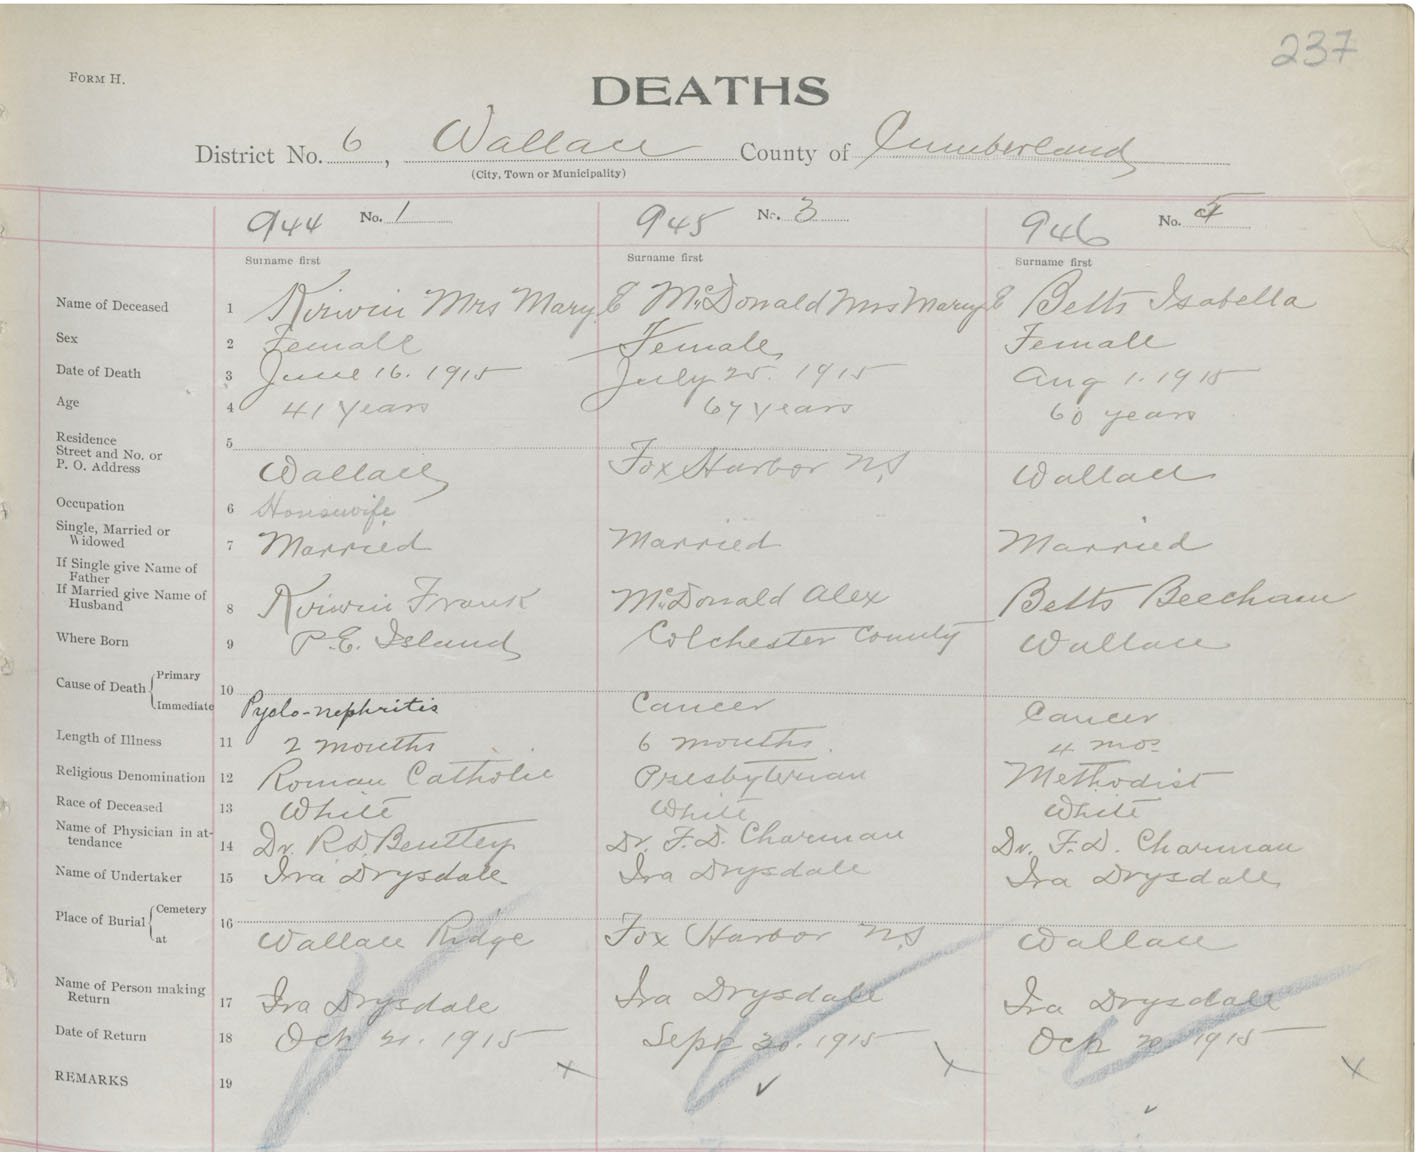 237
FORM H.
DEATHS
District No. 6, Wallace County of Cumberland
(City, Town or Municipality)
944 No. 1 945 No. 3 946 No.
Surname first Surname first Surname first
Name of Deceased 1 Kirwin Mrs Mary E McDonald Mrs Mary E Betts Isabella
Sex 2 Female Female Female
Date of Death 3 June 16. 1915 July 25. 1915 Aug 1. 1915
Age 4 41 years 67 years 60 years
Residence 5
Street and No. or
P. O. Address Wallace Fox Harbor N.S Wallace
Occupation 6 Housewife
Single, Married or
Widowed 7 Married Married Married
If Single give Name of
Father
If Married give Name of
Husband 8 Kirwin Frank McDonald Alex Betts Beecham
Where Born 9 P.E. Island Colchester County Wallace
Cause of Death Primary 10
Immediate Pyelo-nephritis Cancer Cancer
Length of Illness 11 2 months 6 months. 4 mos
Religious Denomination 12 Roman Catholic Presbyterian Methodist
Race of Deceased 13 White White White
Name of Physician in at-
tendance 14 Dr. R.D. Bentley Dr. F.D. Charman Dr. F.D. Charman
Name of Undertaker 15 Ira Drysdale Ira Drysdale Ira Drysdale
Place of Burial Cemetery 16
at Wallace Ridge Fox Harbor N.S Wallace
Name of Person making
Return 17 Ira Drysdale Ira Drysdale Ira Drysdale
Date of Return 18 Oct 21. 1915 Sept 30. 1915 Oct 20 1915
REMARKS 19